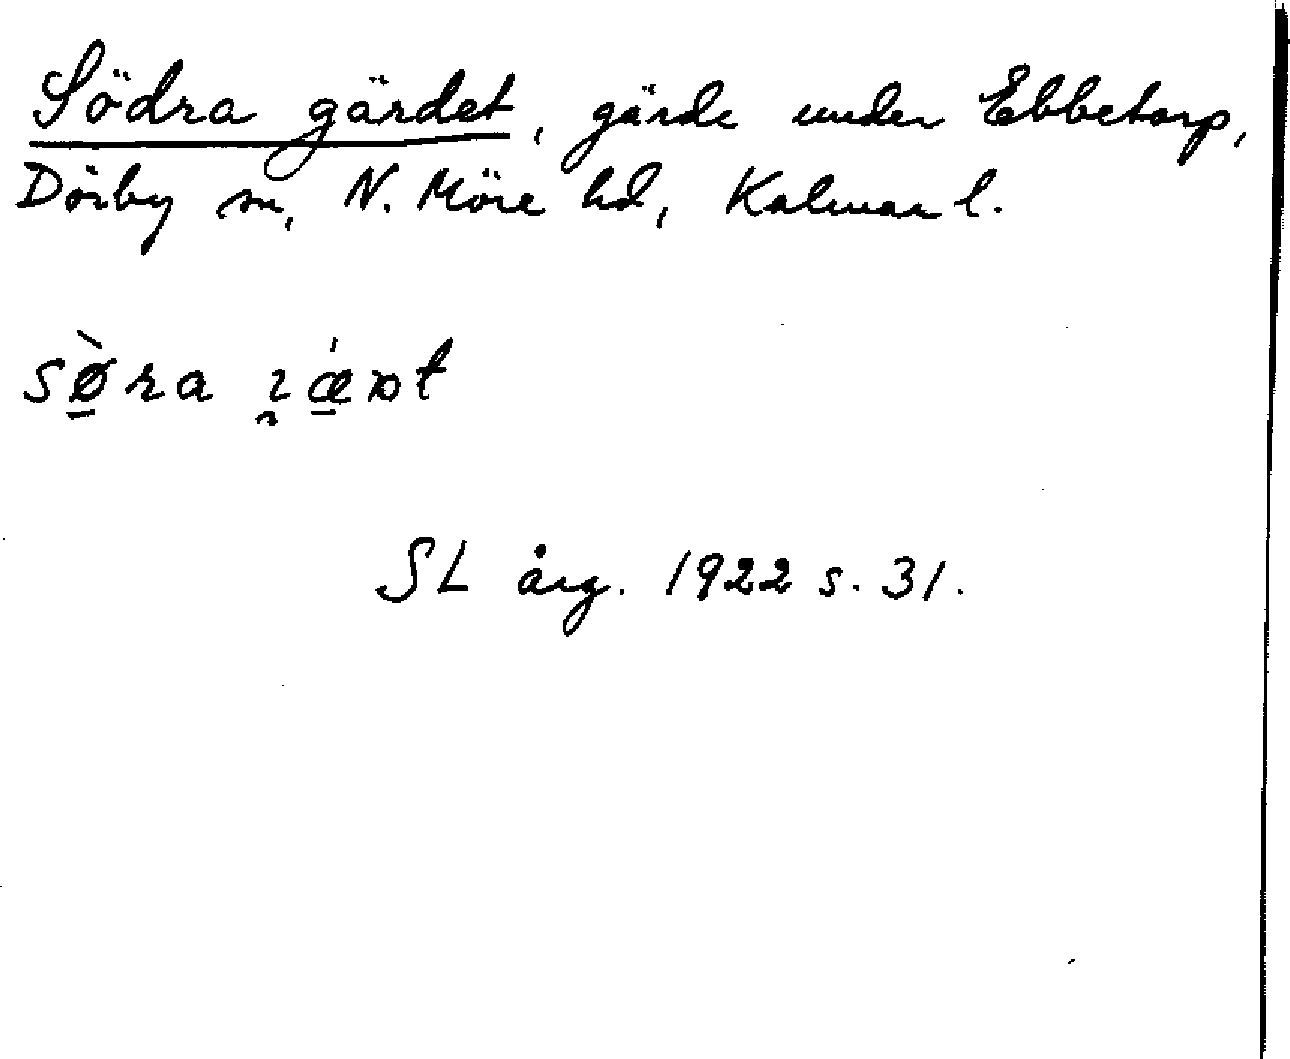 Södra gärdet, gärde under Ebbetorp,
Dörby sn, N. Möre hd, Kalmar l.
sø̱̀ra
SL årg. 1922 s. 31.